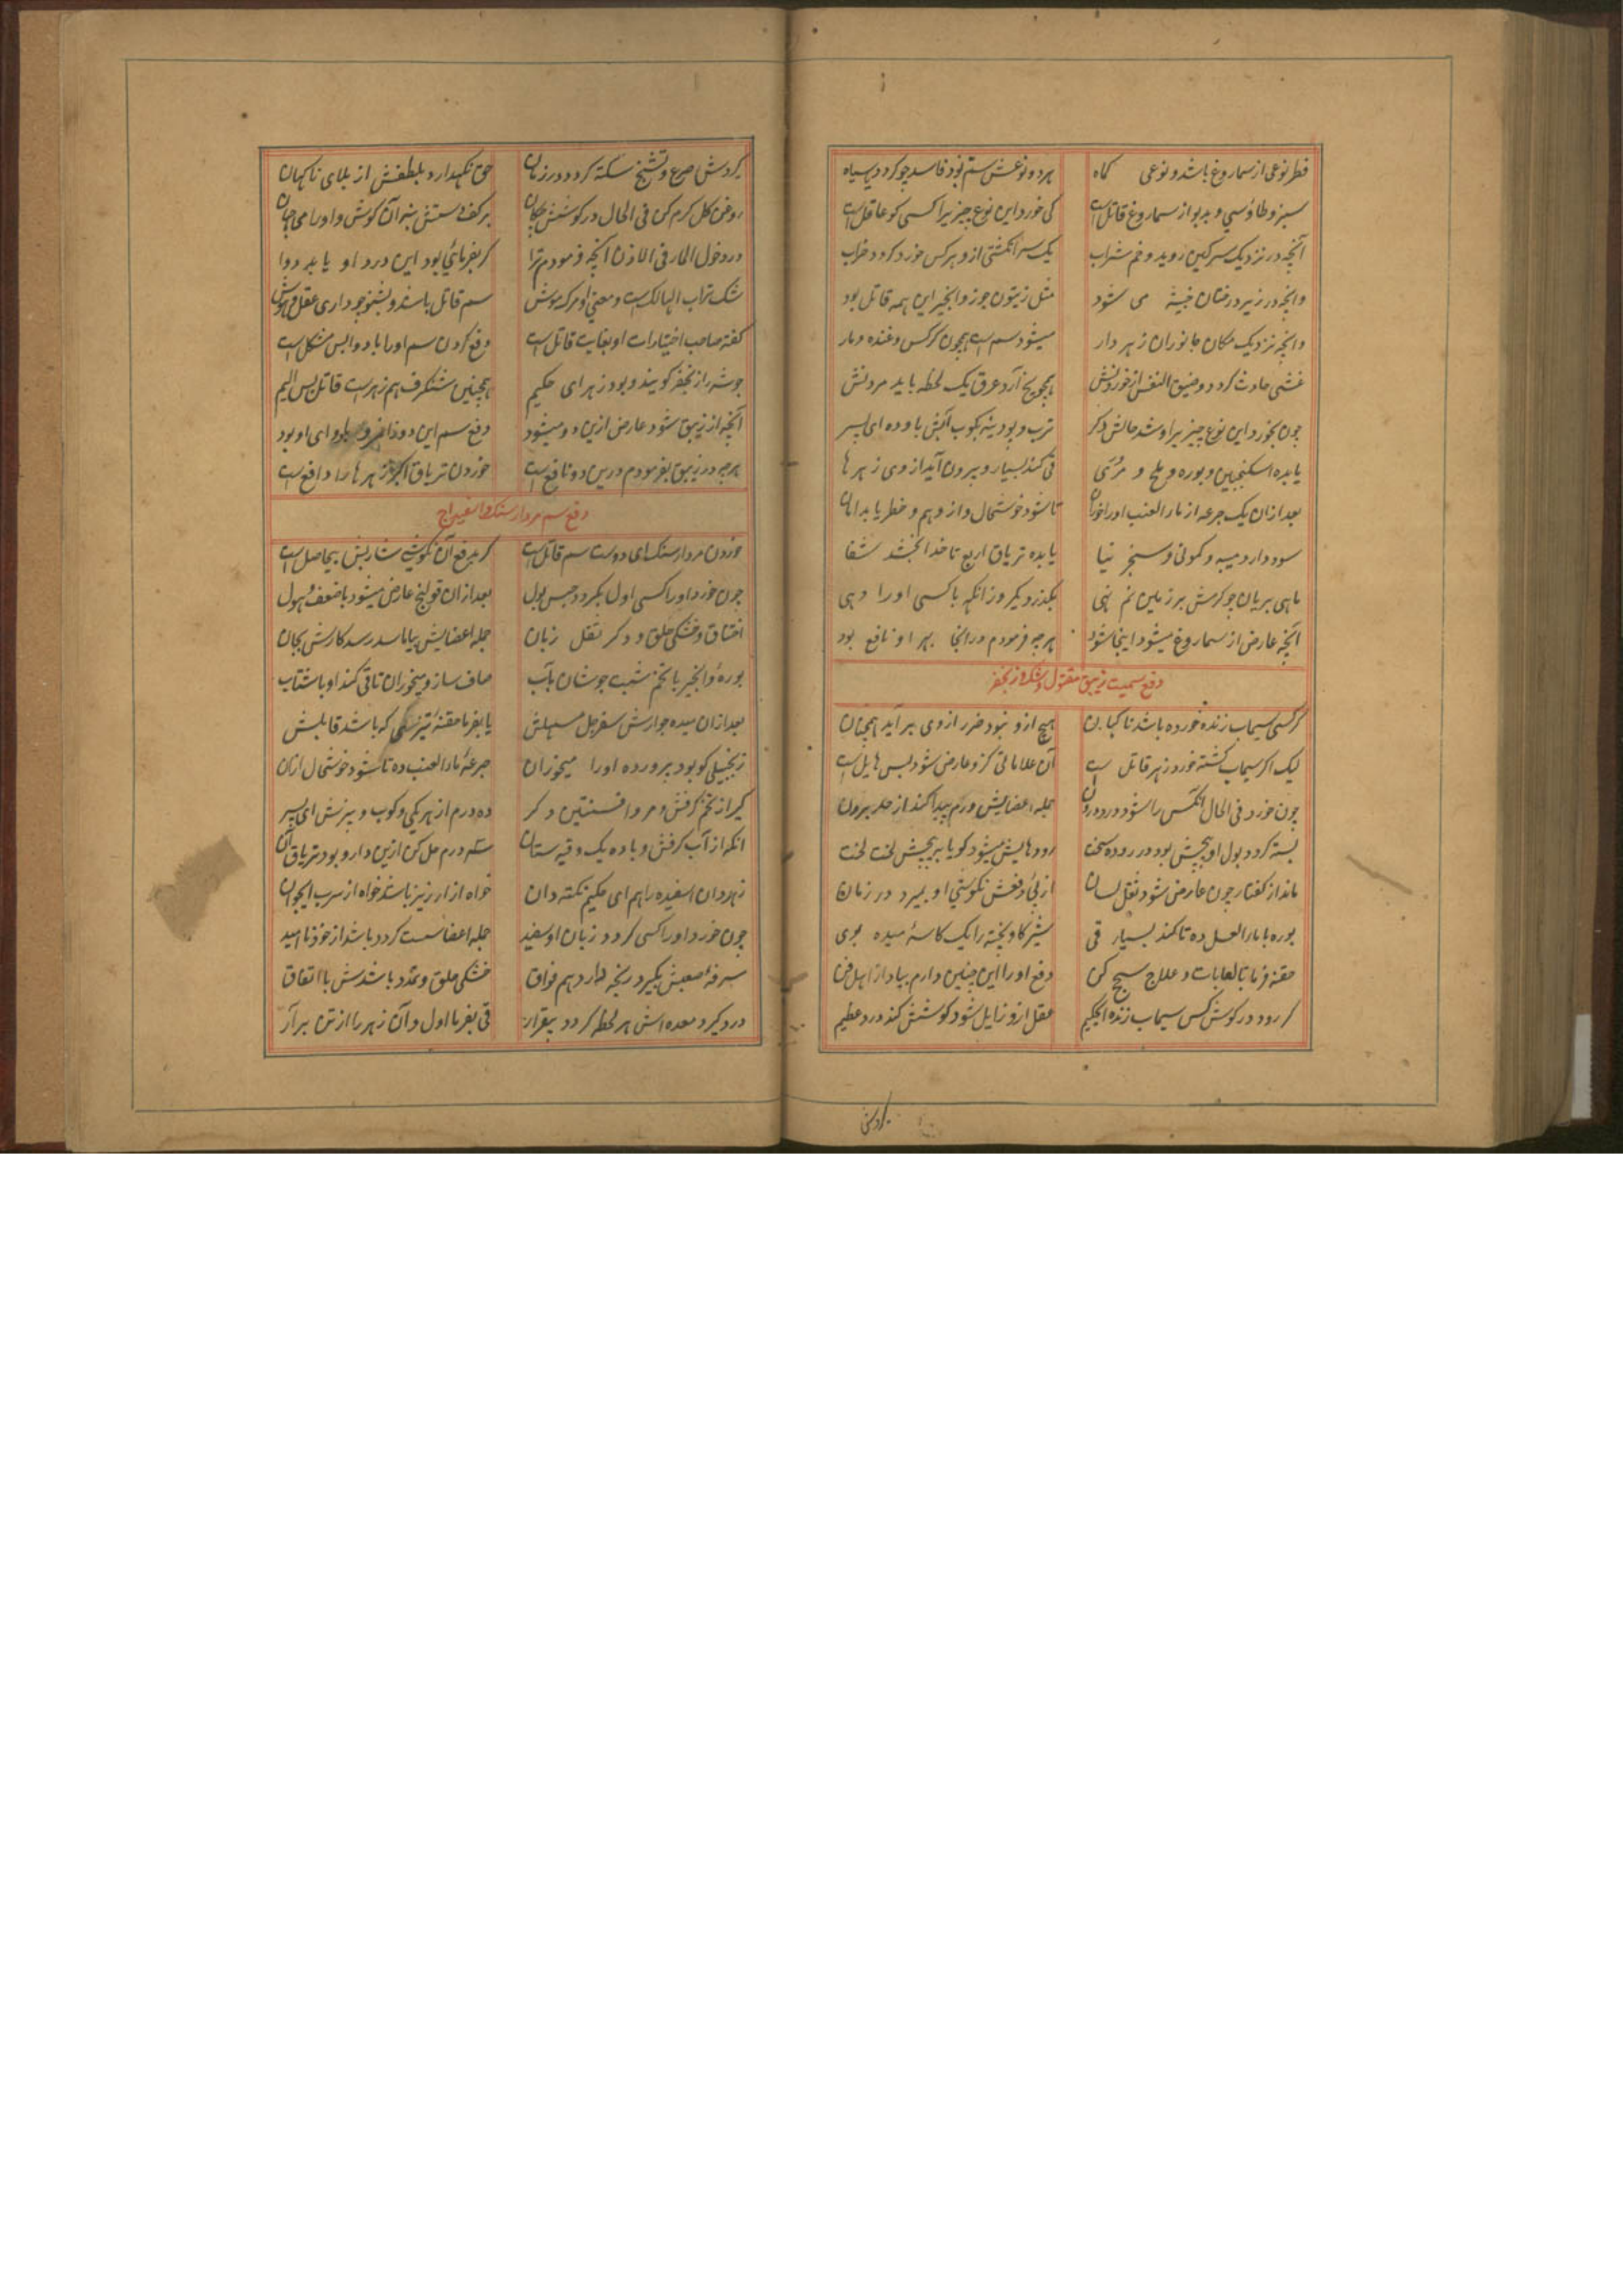 فطر نوعی از سماروغ باشد و نوعی کماه هر دو نوعش ستم بود فاسد چو کردد یا سیاه
سبز و طاوسی و بدبو از سماروغ قاتل است کی خورد این نوع چیزیرا کسی کو عاقل است
آنچه در نزدیک سرکین روید و خم شراب یک سر انکشتی ازو هر کس خورد کردد خراب
وانچه در زیر درختان خبیثه می شود مثل زیتون جوز و انجیر این همه قاتل بود
وانچه نزدیک مکان جانوران زهر دار میشود سم است همچون کرکس و غنده و مار
غشی حادث کردد و ضیق النفس از خوردنش آرد عرق یک لحظه باید مردنش
چون بخورد این نوع چیزیرا و شد حالش دکر ترب و پودینه بکوب آبش با و ده ای پسر
یا بده اسکنجبین و بوره و ملح و مری قی کند بسیار و بیرون آید از وی زهر ها
بعد ازان یک جرعه از ماء العنب او را خوران تا شود خوشحال و از وهم و خطر یابد امان
سود دارد میبه و کمونی و سنجرنیا یا بده تریاق اربع تا خدا بخشد شفا
ماهی بریان چو کرمش بر زمین نم نهی بکذرد یکروز انکه با کسی او را دهی
آنچه عارض از سماروغ میشود اینجا شود هر چه فرمودم در انجا بهر او نافع بود
دفع سمیت زیبق مقتول و شک و زنجفر
کر کسی سیماب زنده خورده باشد ناکهان هیچ ازو نبود ضرر از وی بر آید همچنان
لیک اکر سیماب کشته خورد زهر قاتل است آن علاماتی کزو عارض شود بس هایل است
چون خورد فی الحال انکس را شود درد درون جمله اعضایش ورم پیدا کند از حد برون
بسته کردد بول او پیچش بود در روده سخت رودهایش میشود کویا بپیچش لخت لخت
ماند از کفتار چون عارض شود ثقل لسان از پی دفعش نکوشی او بمیرد در زمان
بوره با ماء العسل ده تا کند بسیار قی شیر کاو پخته را یک کاسه میده بوی
حقنه فرما با لعابات و علاج سحج کن دفع او را این چنین دارم بیاد از اهل فن
کر رود در کوش کس سیماب زنده ای حکیم عقل ازو زایل شود کوشش کند درد عظیم
کردش
کردش صرع و تشنج سکته کردد در زمان حق نکهدارد بلطفش از بلای ناکهان
روغن کل کرم کن فی الحال در کوشش چکان بر کف دستش بنه آن کوش و او را می جهان
در دخول الماء فی الاذن انچه فرمودم ترا کر بفرمائی بود این درد او یابد دوا
شک تراب الهالک است و معنی او مرک موش سم قاتل باشد و بشنو چو داری عقل و هوش
کفته صاحب اختیارات او بغایت قاتل است دفع کردن سم او را با دوا بس مشکل است
زنجفر کویند و بود زهر ای حکیم همچنین شنکرف هم زهر است قاتل بس الیم
آنچه از زیبق شود عارض ازین دو میشود دفع سم این دو
هر چه در زیبق بفرمودم درین دو نافع است خوردن تریاق اکبر زهر ها را دافع است
دفع سم مردار سنک و اسفیداج
خوردن مردار سنک ای دوست سم قاتل است کر بدفع آن نکوشی بیحاصل است
چون خورد او را کسی اول بکیرد حبس بول بعد ازان قولنج عارض میشود با ضعف و هول
اختناق و خشکی حلق و دکر ثقل زبان جمله اعضایش بیاماسد رسد کارش بجان
بوره و انجیر با تخم شبت جوشان بآب صاف ساز و میخوران تا قی کند او با شتاب
بعد ازان میده جوارش سفرجل مسهلش یا بفرما حقنه تیزی که باشد قابلش
زنجبیلی کو بود پرورده او را میخوران جرعه ماء العنب ده تا شود خوشحال ازان
کیر از تخم کرفس و مر و افسنتین دکر ده درم از هر یکی و کوب و بیزش ای پسر
انکه از آب کرفس و باده یک وقیه ستان سه درم حل کن ازین دارو بود تریاق آن
زهر دان اسفیده را هم ای حکیم نکته دان خواه از ارزیز باشد خواه از سرب ای جوان
چون خورد او را کسی کردد زبان او سفید جمله اعضا سست کردد باشد از خود ناامید
سرفه صعبش بکیرد رنجه دارد هم فواق خشکی حلق و تمدد باشدش با اتفاق
درد کیرد معده اش هر لحظه کردد بیقرار قی بفرما اول و آن زهر را از تن برآر